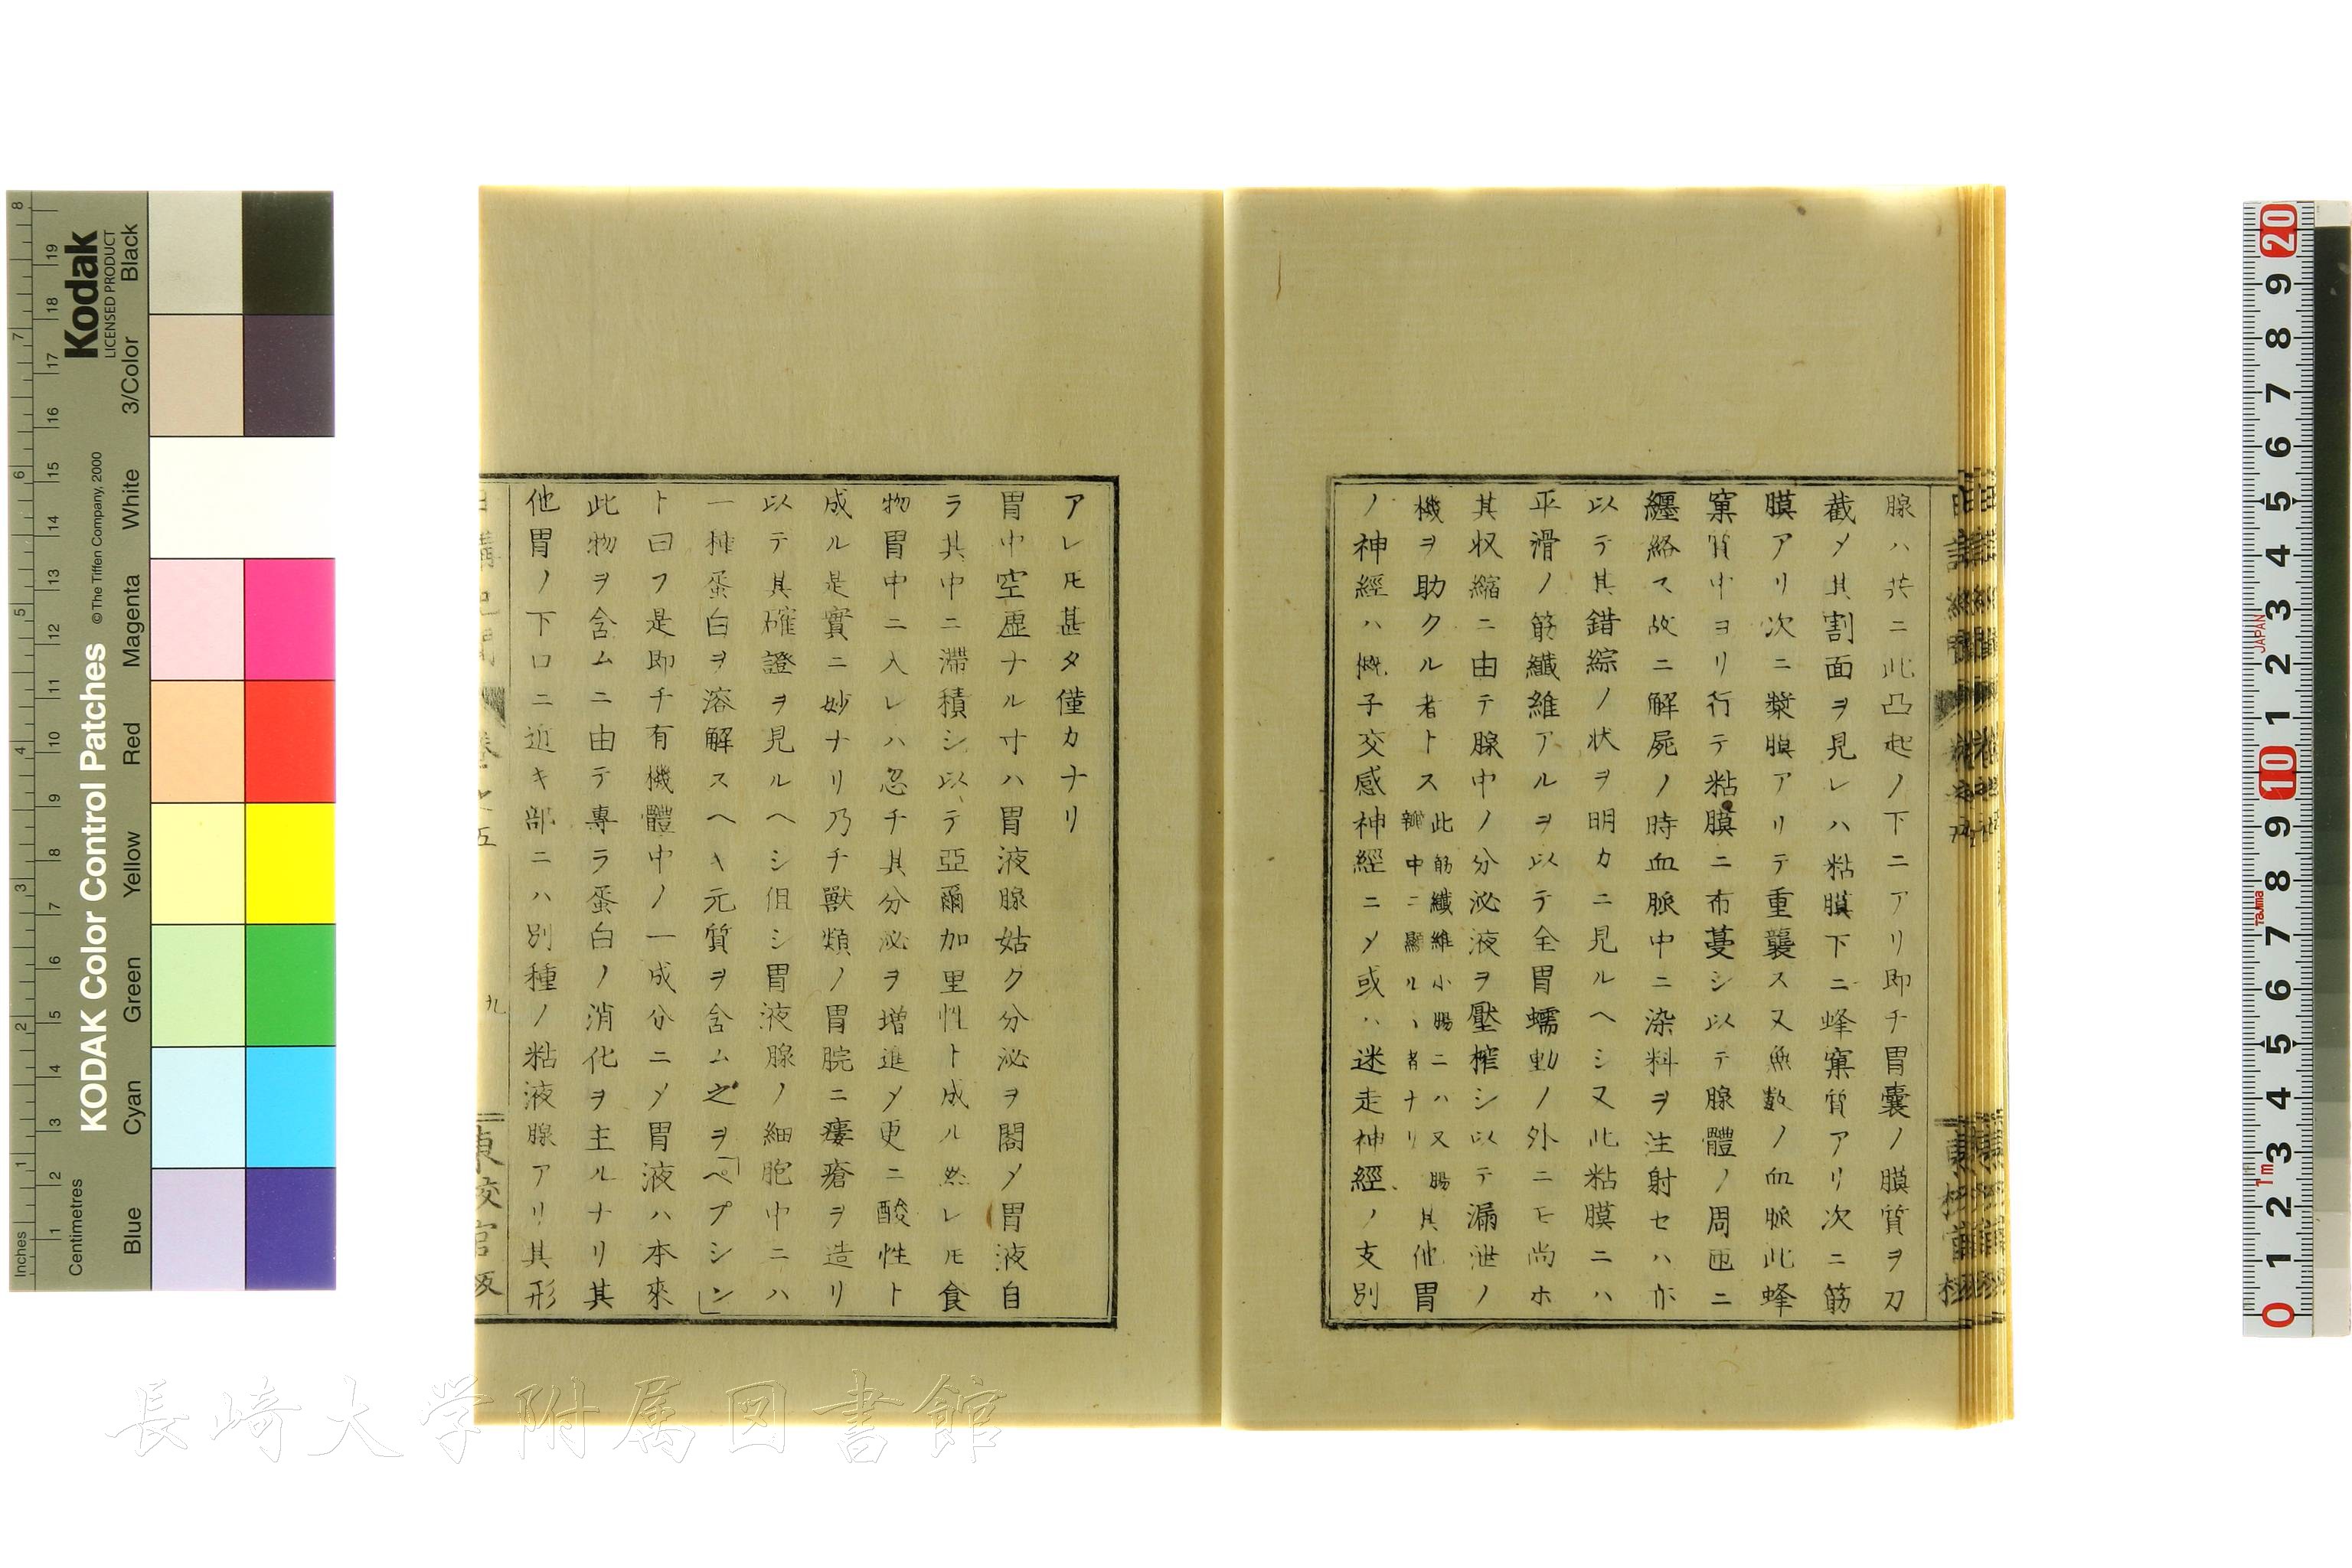 腺ハ共ニ此凸起ノ下ニアリ即チ胃嚢ノ膜質ヲ刀
截〆其割面ヲ見レハ粘膜下ニ蜂窠質アリ次ニ筋
膜アリ次ニ漿膜アリテ重襲ス又無数ノ血脈此蜂
窠質中ヨリ行テ粘膜ニ布蔓シ以テ腺體ノ周匝ニ
纒絡ス故ニ解屍ノ時血脈中ニ染料ヲ注射セハ亦
以テ其錯綜ノ状ヲ明カニ見ルヘシ又此粘膜ニハ
平滑ノ筋纖維アルヲ以テ全胃蠕動ノ外ニモ尚ホ
其収縮ニ由テ腺中ノ分泌液ヲ壓搾シ以テ漏泄ノ
機ヲ助クル者トス此筋纖維小腸ニハ又腸瓣中ニ顯ルヽ者ナリ其他胃
ノ神經ハ概子交感神經ニ〆或ハ迷走神經ノ支別
アレ𪜈甚タ僅カナリ
胃中空虚ナル寸ハ胃液腺姑ク分泌ヲ閣〆胃液自
ラ其中ニ滞積シ以テ亞爾加里性ト成ル然レ𪜈食
物胃中ニ入レハ忽チ其分泌ヲ増進〆更ニ酸性ト
成ル是實ニ妙ナリ乃チ獸類ノ胃脘ニ瘻瘡ヲ造リ
以テ其確證ヲ見ルヘシ但シ胃液腺ノ細胞中ニハ
一種蛋白ヲ溶解スヘキ元質ヲ含ム之ヲ「ペプシン」
ト曰フ是即チ有機體中ノ一成分ニ〆胃液ハ本來
此物ヲ含ムニ由テ專ラ蛋白ノ消化ヲ主ルナリ其
他胃ノ下口ニ近キ部ニハ別種ノ粘液腺アリ其形
九
長崎大学附属図書館
Kodak
LICENSED PRODUCT
KODAK Color Control Patches
© The Tiffen Company, 2000
Inches
1 2 3 4 5 6 7 8
Centimetres
1 2 3 4 5 6 7 8 9 10 11 12 13 14 15 16 17 18 19
Blue Cyan Green Yellow Red Magenta White 3/Color Black
20 9 8 7 6 5 4 3 2 1 10 9 8 7 6 5 4 3 2 1 0
JAPAN
Tajima
1m